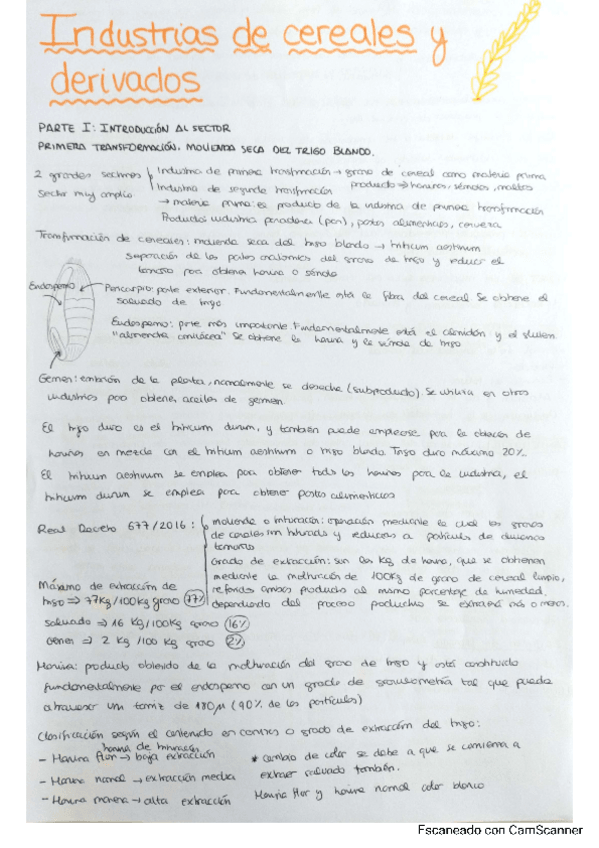 Industrias de cereales y
derivados
PARTE I: INTRODUCCIÓN AL SECTOR
PRIMERA TRANSFORMACIÓN. MOLIENDA SECA DEL TRIGO BLANDO.
2 grandes sectores Industria de primera transformación → grano de cereal como materia prima
producto → harinas, sémolas, maltas
Sector muy amplio Industria de segunda transformación
→ materia prima: es producto de la industria de primera transformación
Productos industria panadera (pan), pastas alimenticias, cerveza
Transformación de cereales: molienda seca del trigo blando → triticum aestivum
Separación de las partes anatómicas del grano de trigo y reducir el
tamaño para obtener harina o sémola
Endospermo
Pericarpio: parte exterior. Fundamentalmente está la fibra del cereal. Se obtiene el
salvado de trigo
Endospermo: parte más importante. Fundamentalmente está el almidón y el gluten
"almendra amilácea" Se obtiene la harina y la sémola de trigo
Germen: embrión de la planta, normalmente se desecha (subproducto). Se utiliza en otras
industrias para obtener aceites de germen
El trigo duro es el triticum durum, y también puede emplearse para la obtención de
harinas en mezcla con el triticum aestivum o trigo blando. Trigo duro máximo 20%
El triticum aestivum se emplea para obtener todas las harinas para la industria, el
triticum durum se emplea para obtener pastas alimenticias
Real Decreto 677/2016:
molienda o trituración: operación mediante la cual los granos
de cereales son triturados y reducidos a partículas de diversos
tamaños
Grado de extracción: son los kg de harina, que se obtienen
mediante la molturación de 100kg de grano de cereal limpio,
referidos ambos productos al mismo porcentaje de humedad.
dependiendo del proceso productivo se extraerá más o menos.
Máximo de extracción de
trigo → 77kg/100kg grano 77%
salvado → 16 kg/100kg grano 16%
germen → 2 kg/100 kg grano 2%
Harina: producto obtenido de la molturación del grano de trigo y está constituido
fundamentalmente por el endospermo con un grado de granulometría tal que pueda
atravesar un tamiz de 180μ (90% de las partículas)
Clasificación según el contenido en cenizas o grado de extracción del trigo:
- Harina flor → baja extracción
- Harina normal → extracción media
- Harina morena → alta extracción
* cambio de color se debe a que se comienza a
extraer salvado también.
Harina flor y harina normal color blanco
Escaneado con CamScanner